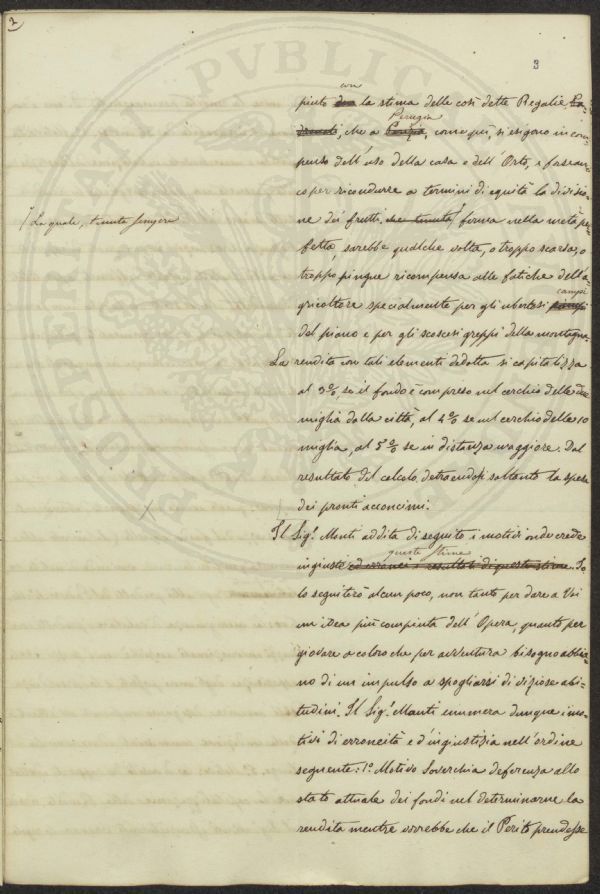 2
3
con
piuto la stima delle così dette Regalie
Perugia
che a Perugia, come quì, si esigono in com
penso dell'uso della casa e dell'Orto, e
co per ricondurre a termini di equità la divisio
ne dei frutti, che tenuta ferma nella metà per
fetta, sarebbe qualche volta, o troppo scarsa, o
troppo pingue ricompensa alle fatiche dell'a
campi
gricoltore specialmente per gli ubertosi campi
del piano e per gli scoscesi greppi della montagna.
La quale, tenuta sempre
La rendita con tali elementi dedotta si capitalizza
al 3%, se il fondo è compreso nel cerchio delle due
miglia dalla città, al 4% se nel cerchio delle 10
miglia, al 5% se in distanza maggiore. Dal
resultato del calcolo, detraendosi soltanto la spesa
dei pronti acconcimi.
Il Sigr. Monti addita di seguito i motivi onde crede
queste stime
ingiusti ed erronei i resultati di queste stime. Io
lo seguiterò alcun poco, non tanto per dare a Voi
un idea più compiuta dell'Opera, quanto per
giovare a coloro che per avventura bisogno abbia
no di un impulso a spogliarsi di viziose abi
tudini. Il Sigr. Monti enumera dunque i mo
tivi di erroneità e d'ingiustizia nell'ordine
seguente: 1o. Motivo Soverchia deferenza allo
stato attuale dei fondi nel determinarne la
rendita mentre vorrebbe che il Perito prendesse